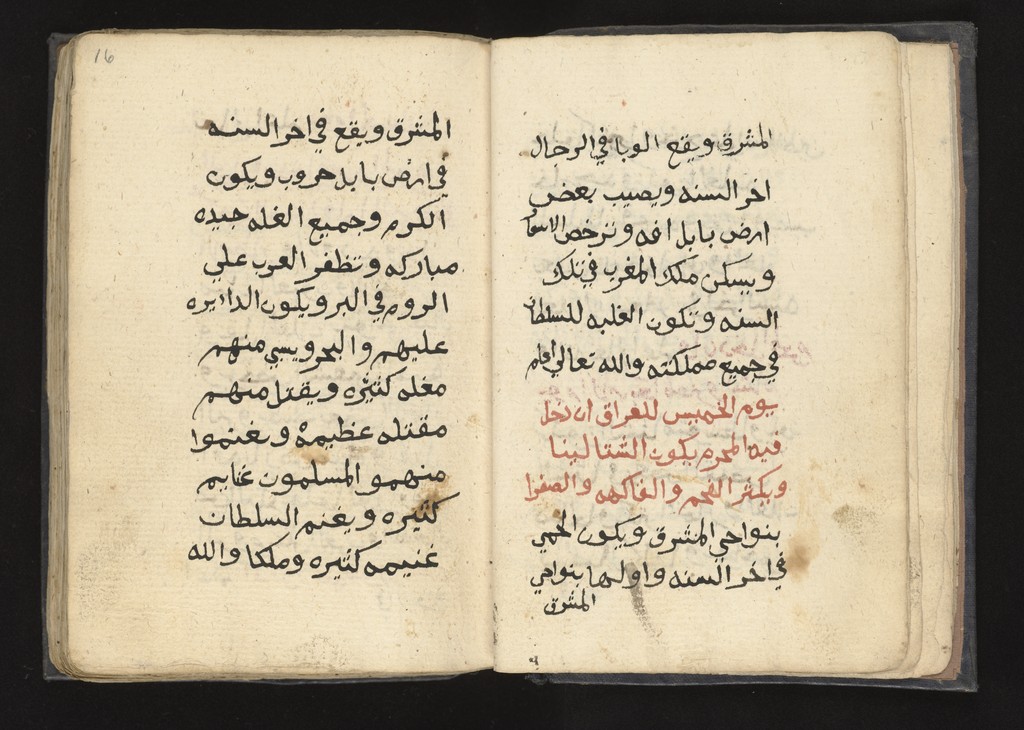 المشرق ويقع الوبا في الرجال
اخر السنه ويصيب بعض
ارض بابل افه وترخص الاسعا
ويسكن ملك المغرب في تلك
السنه وتكون الغلبه للسلطان
في جميع مملكته والله تعالي اعلم
يوم الخميس للعراق ان دخل
فيه المحرم يكون الشتا لينا
ويكثر القمح والفاكهه والصفرا
بنواحي المشرق ويكون الحمي
في اخر السنه واولها بنواحي
المشرق
16
المشرق ويقع في اخر السنه
في ارض بابل حروب ويكون
الكرم وجميع الغله جيده
مباركه وتظفر العرب علي
الروم في البر ويكون الدايره
عليهم والبحر ويسبي منهم
مغله كثيره ويقتل منهم
مقتله عظيمه ويغنموا
منهمو المسلمون غنايم
كثيره ويغنم السلطان
غنيمه كثيره وملكا والله